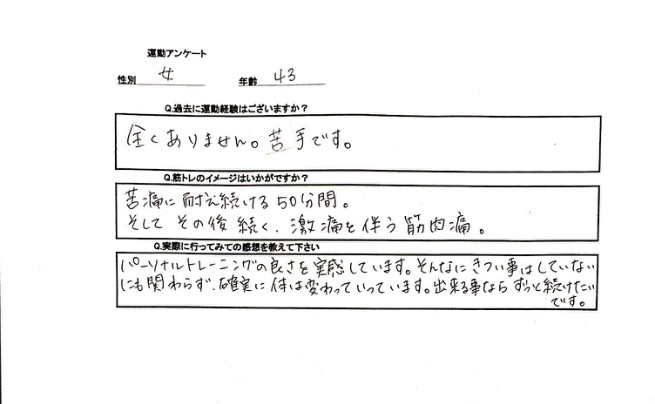 運動アンケート
性別 女 年齢 43
Q.過去に運動経験はございますか？
全くありません。苦手です。
Q.筋トレのイメージはいかがですか？
苦痛に耐え続ける50分間。
そして その後 続く、激痛を伴う筋肉痛。
Q.実際に行ってみての感想を教えて下さい
パーソナルトレーニングの良さを実感しています。そんなにきつい事はしていない
にも関わらず、確実に体は変わっていっています。出来る事なら ずっと続けたい
です。